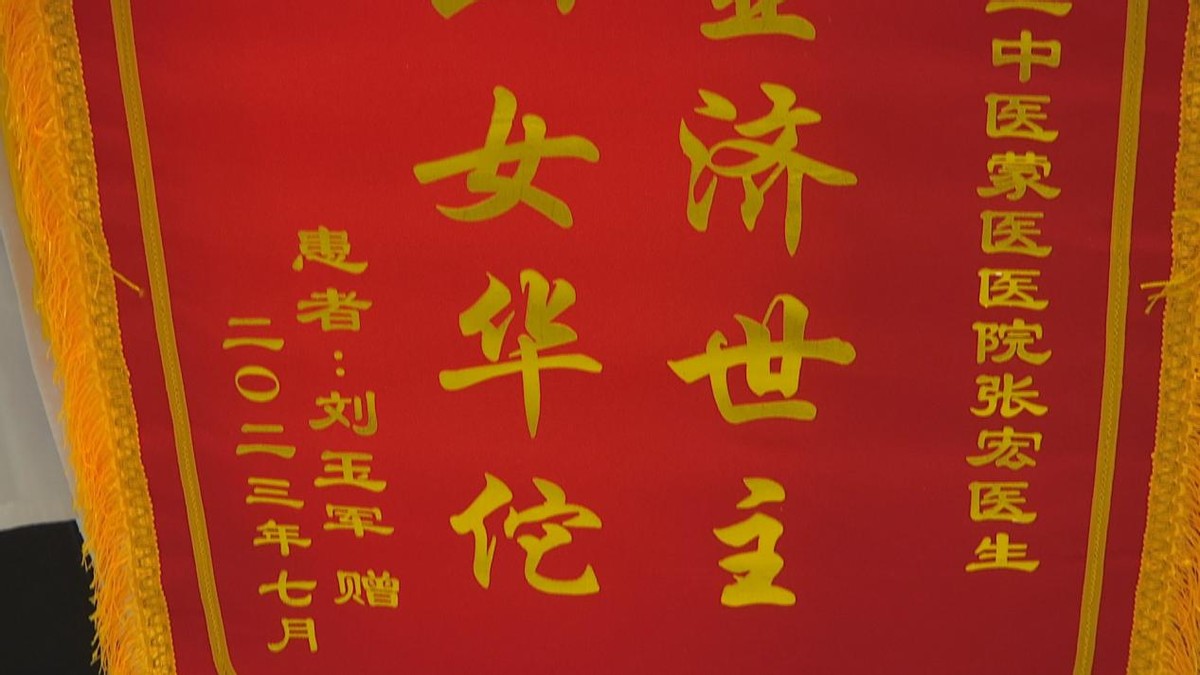 中医蒙医医院张宏医生
济世主
女华佗
患者：刘玉军 赠
二〇二三年七月